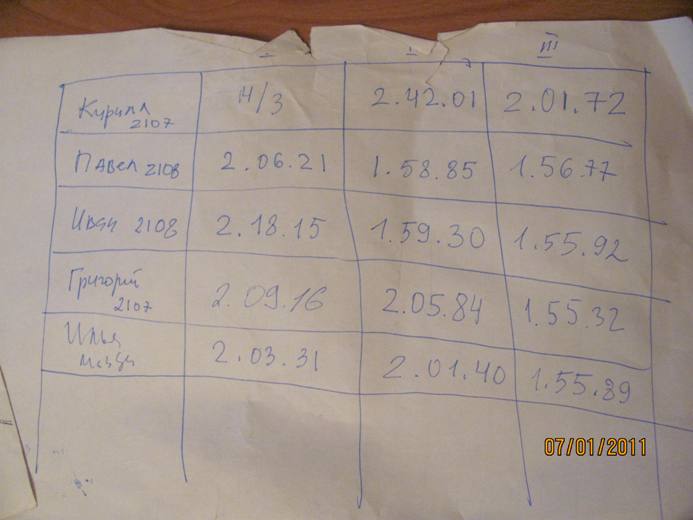 I I III
Кирилл 2107 н/з 2.42.01 2.01.72
Павел 2108 2.06.21 1.58.85 1.56.77
Иван 2108 2.18.15 1.59.30 1.55.92
Григорий 2107 2.09.16 2.05.84 1.55.32
Илья мазда 2.03.31 2.01.40 1.55.89
07/01/2011